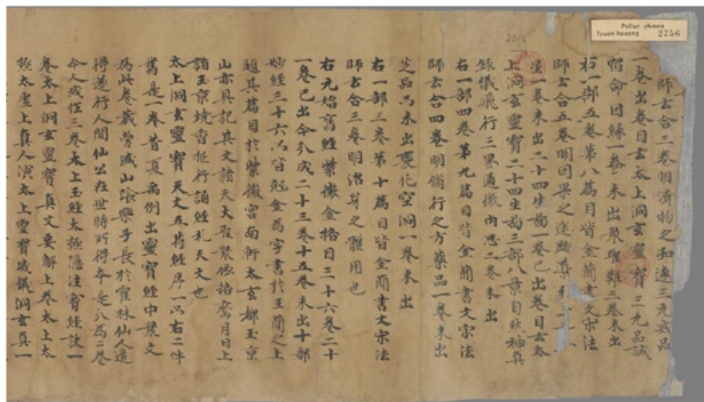 Pelliot chinois
Touen-houang 2256
師云合三卷明濟物之和遠三元戒品
一卷出卷目云太上洞玄靈寶三元品誡
宿命因緣一卷未出衆聖難三卷未出
右一部五卷第八篇目皆金簡書文宗法
師云合五卷明因果之途
一卷未出二十四生圖一卷已出卷目云太
上洞玄靈寶二十四生圖三部八景自然神真
籙儀飛行三界通微內思二卷未出
右一部四卷第九篇目皆金簡書文宋法
師云合四卷明脩行之方藥品一卷未出
芝品一卷未出變化空洞一卷未出
右一部三卷第十篇目皆金簡書文宋法
師云合三卷明治身之體用也
右元始舊經紫微金格目三十六卷二十
一卷已出今分成二十三卷十五卷未出十部
妙經三十六卷皆尅金為字書於玉簡之上
題其篇目於紫微宮南軒太玄都玉京
山亦具記其文諸天大聖衆依格齋月日上
詣玉京燒香旋行誦經礼天文也
太上洞玄靈寶天文五符經序一卷右二件
舊是一卷昔夏禹例出靈寶經中衆文
為此卷藏勞盛山陰樂子長於霍林仙人邊
得遂行人間仙公在世時所得本是分為二卷
今人或作三卷太上玉經太極隱注寶經訣一
卷太上洞玄靈寶真文要解上卷太上太
極太虛上真人演太上靈寶威儀洞玄真一